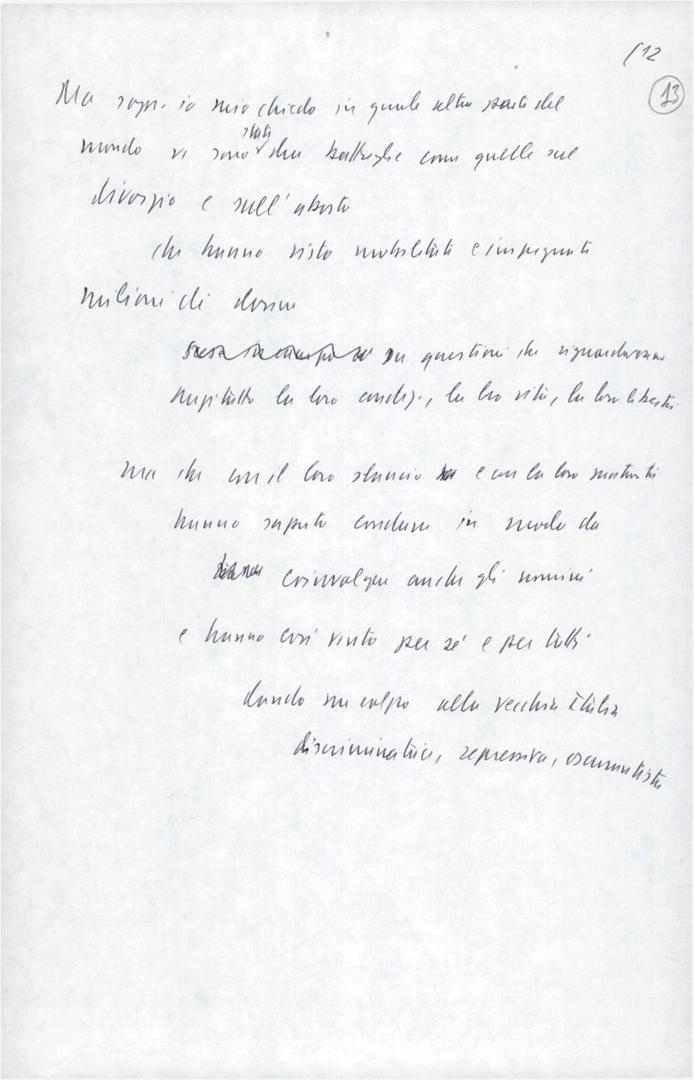 12
13
Ma sopr. io mi chiedo in quale altra parte del
mondo vi sono stati due battaglie come quelle sul
divorzio e sull'aborto
che hanno visto mobilitati e impegnati
milioni di donne
su questioni che riguardavano
anzitutto la loro condiz., la loro vita, la loro libertà
ma che con il loro slancio e con la loro maturità
hanno saputo condurre in modo da
coinvolgere anche gli uomini
e hanno così vinto per sé e per tutti
dando un colpo alla vecchia Italia
discriminatrice, repressiva, oscurantista